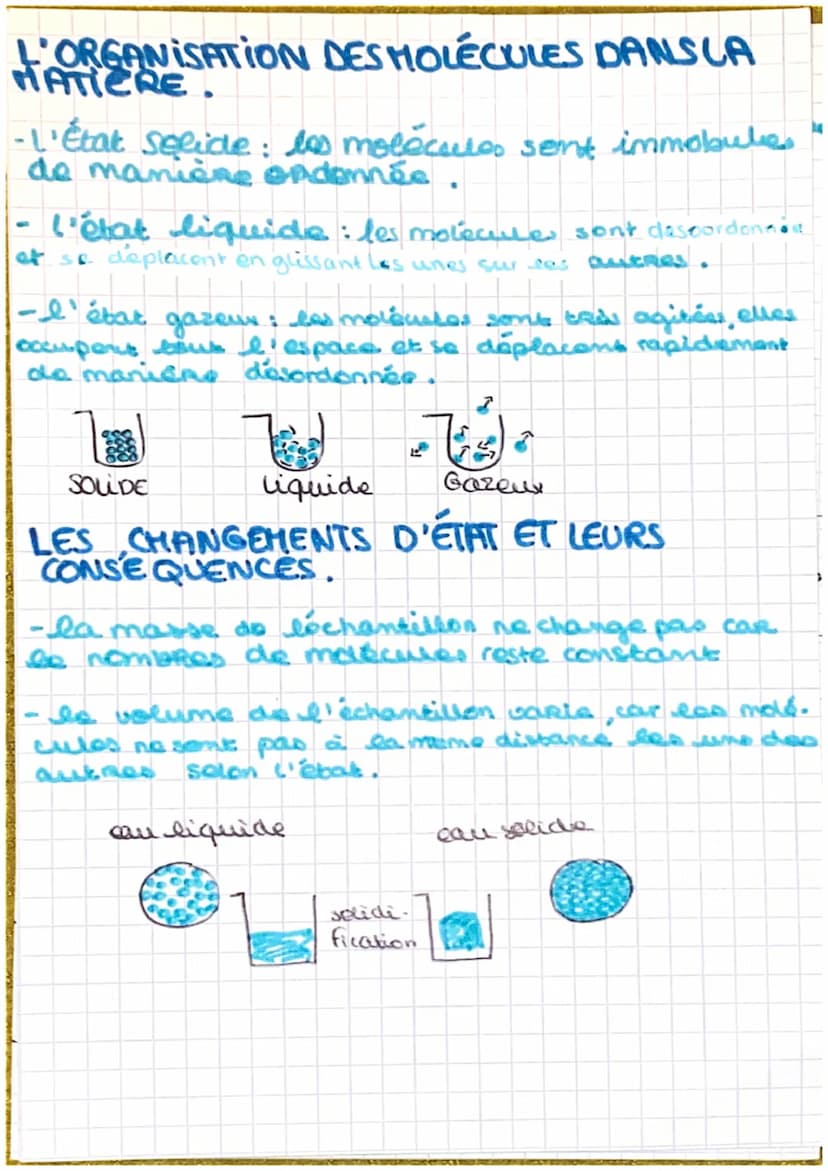 L'ORGANISATION DES MOLÉCULES DANS LA
MATIÈRE.
- L'État solide : les molécules sont immobules
de manière ordonnée.
- l'état liquide : les molécules sont desoordonnée
et se déplacent en glissant les unes sur les autres.
- l'état gazeux : les molécules sont très agitées, elles
occupent tout l'espace et se déplacent rapidement
de manière désordonnée.
SOLIDE liquide Gazeux
LES CHANGEMENTS D'ÉTAT ET LEURS
CONSÉQUENCES.
- la masse de l'échantillon ne change pas car
le nombres de molécules reste constant
- le volume de l'échantillon varie, car les molé-
cules ne sont pas à la meme distance les uns des
autres selon l'état.
eau liquide eau solide
solidi-
fication